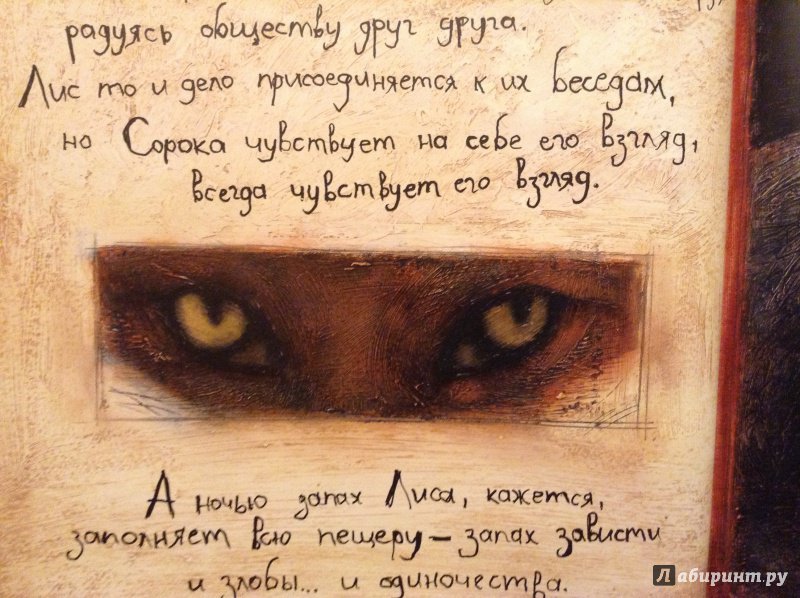 радуясь обществу друг друга.
Лис то и дело присоединяется к их беседам,
но Сорока чувствует на себе его взгляд,
всегда чувствует его взгляд.
А ночью запах Лиса, кажется,
заполняет всю пещеру – запах зависти
и злобы... и одиночества.
Лабиринт.ру